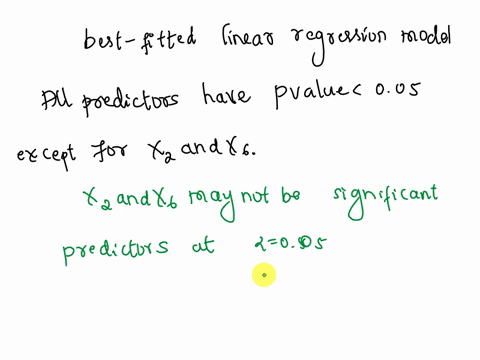 best-fitted linear regression model
All predictors have pvalue < 0.05
except for X₂ and X₆.
X₂ and X₆ may not be significant
predictors at α=0.05